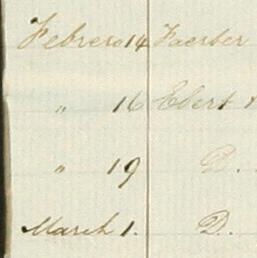 Febrero 14 Faerber
" 16 Ebert &
" 19 D.
March 1. D.